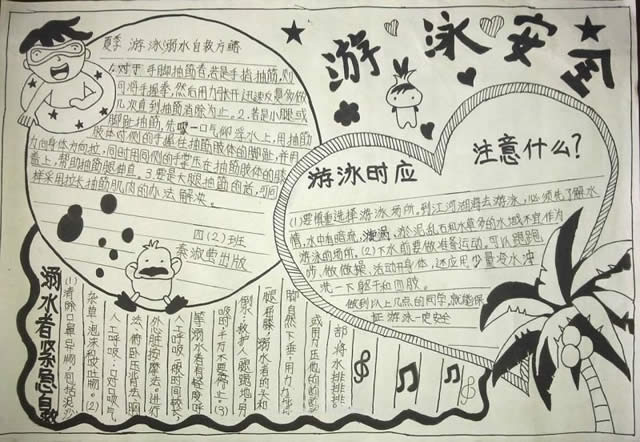 游泳安全
夏季 游泳溺水自救方略
1.对于手脚抽筋者,若是手指抽筋,则
可将手握拳,然后用力张开,迅速反复多做
几次,直到抽筋消除为止。2.若是小腿或
脚趾抽筋,先吸一口气仰浮水上,用抽筋
肢体对侧的手握住抽筋肢体的脚趾,并用
力向身体方向拉,同时用同侧的手掌压在抽筋肢体的膝
盖上,帮助抽筋腿伸直。3.要是大腿抽筋的话,可同
样采用拉长抽筋肌肉的办法解决。
四(2)班
秦淑萤出版
游泳时应
注意什么?
(1)要慎重选择游泳场所。到江河湖海去游泳,必须先了解水
情,水中有暗流、漩涡、淤泥、乱石和水草多的水域不宜作为
游泳的场所。(2)下水前要做准备运动。可以跑跑
步、做做操,活动开身体,还应用少量冷水冲
洗一下躯干和四肢。
做到以上几点的同学,就能保
证游泳一定安全
溺水者紧急自救
(1)清除口鼻导物,可括泥沙
杂草、泡沫和呕吐物。(2)
人工呼吸:一对口吹气
法、俯卧压背法、胸
外心脏按摩法。进行
人工呼吸一般时间较长,
等溺水者有轻度呼
吸时千万不要停止。(3)
倒水:救护人腿跪地,另
一腿稍膝,溺水者的头和
脚自然下垂,用力
或用力压他的
部,将水排排。